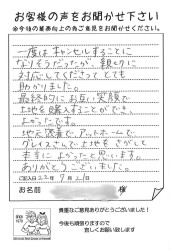 お客様の声をお聞かせ下さい
※今後の業務向上の為ご意見をお聞かせください。
一度はキャンセルすることに
なりそうだったが、親切に
対応してくださってとても
助かりました。
最終的にお互い笑顔で
土地を購入することができ、
よかったです。
地元密着でアットホームで
グレイスさんで土地をさがして
本当によかったと思います。
ありがとうございました。
ご記入日 22年 9月 21日
お名前 様
貴重なご意見ありがとうございました!
今後も頑張りますので
宜しくお願い致します